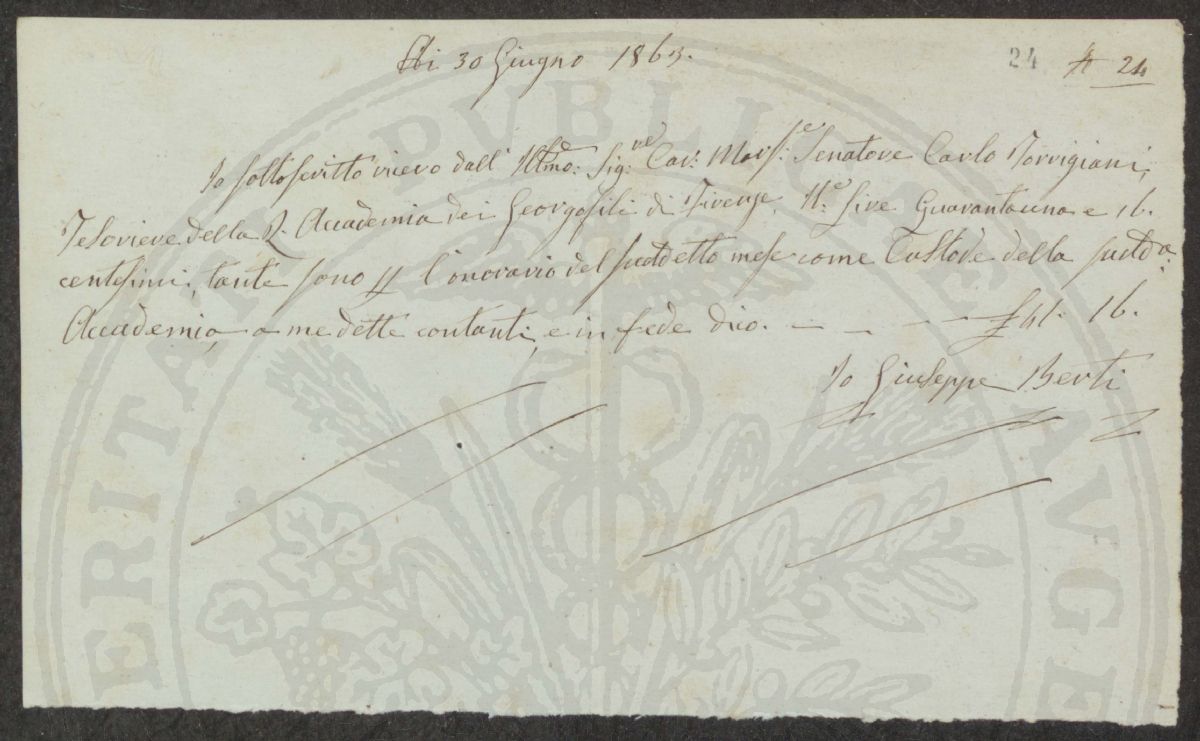 Adi 30 Giugno 1863.
24 N 24
Io sottoscritto ricevo dall' Illmo: Sig.re Cav: March:e Senatore Carlo Torrigiani,
Tesoriere della R. Accademia dei Georgofili di Firenze, It:e Lire Quarantauna e 16.
centesimi, tante sono p l'onorario del suddetto mese come Custode della sudda:
Accademia, a me dette contanti, e in fede dico. — — — £ 41. 16.
Io Giuseppe Berti
ERITATI PUBLICAE AUGE